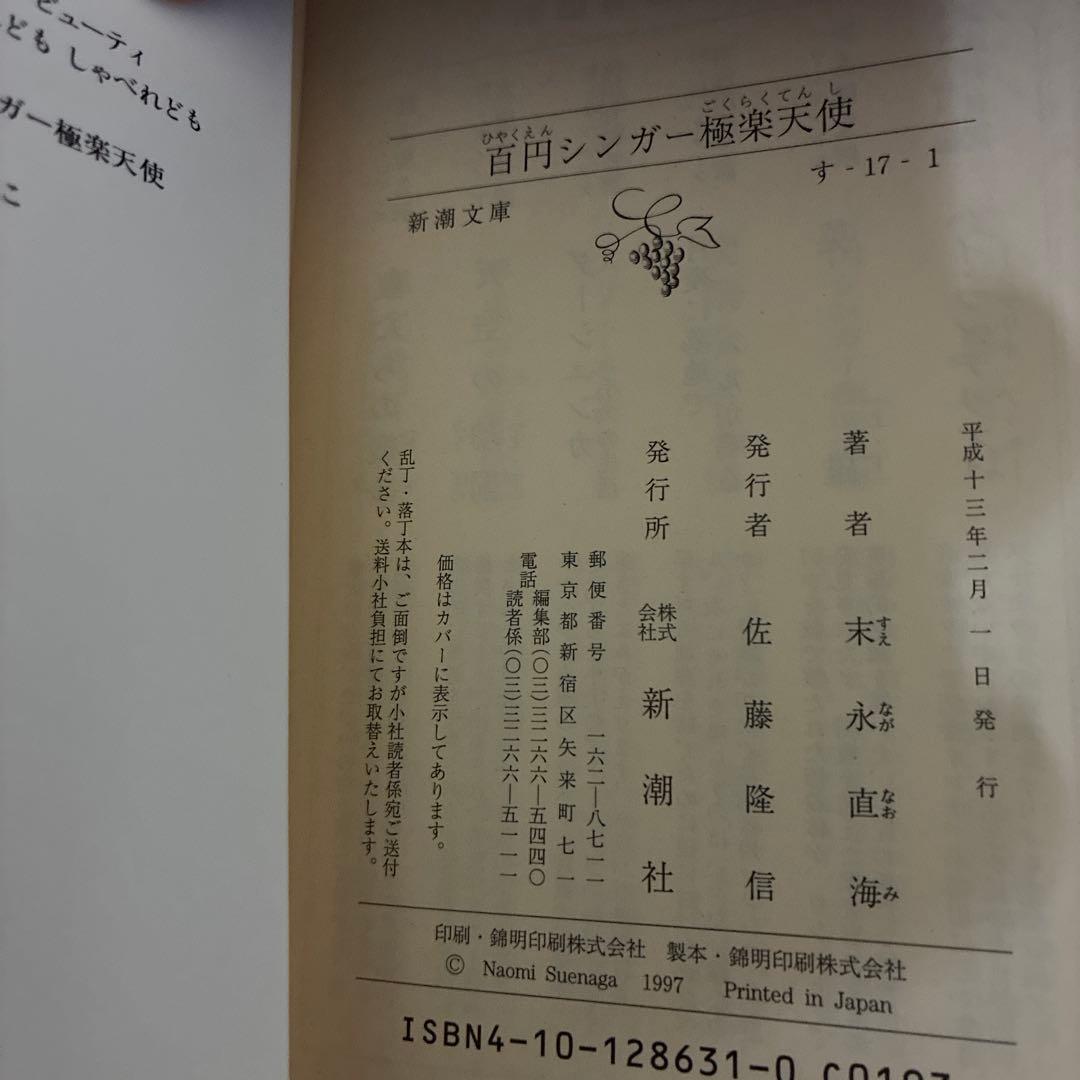 ビューティ
ども しゃべれども
ガー極楽天使
こ
ひゃくえん ごくらくてんし
百円シンガー極楽天使
新潮文庫
す - 17 - 1
平成十三年二月一日発行
著者 末永直海
すえ なが なお み
発行者 佐藤隆信
発行所 株式会社 新潮社
郵便番号 一六二―八七一一
東京都新宿区矢来町七一
電話 編集部(〇三)三二六六―五四四〇
読者係(〇三)三二六六―五一一一
価格はカバーに表示してあります。
乱丁・落丁本は、ご面倒ですが小社読者係宛ご送付
ください。送料小社負担にてお取替えいたします。
印刷・錦明印刷株式会社 製本・錦明印刷株式会社
© Naomi Suenaga 1997 Printed in Japan
ISBN4-10-128631-0 C0193